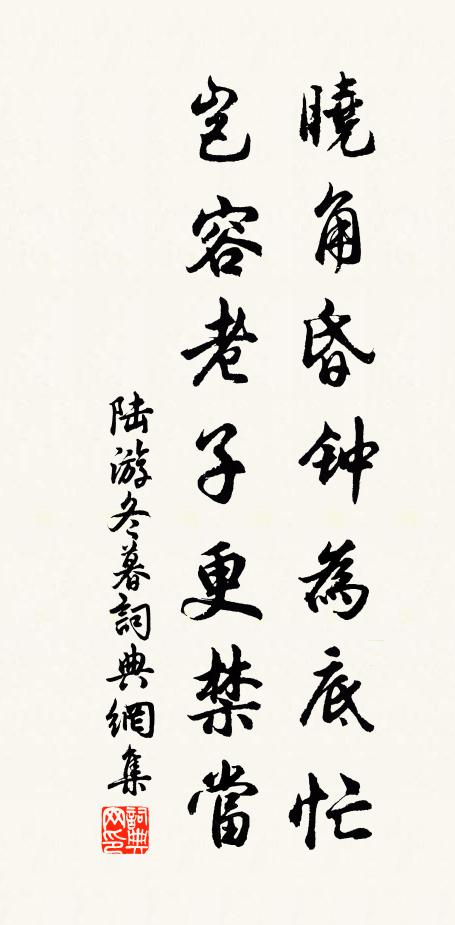 曉角昏钟為底忙
豈容老子更禁當
陆游冬暮詞典網集
詞典网印